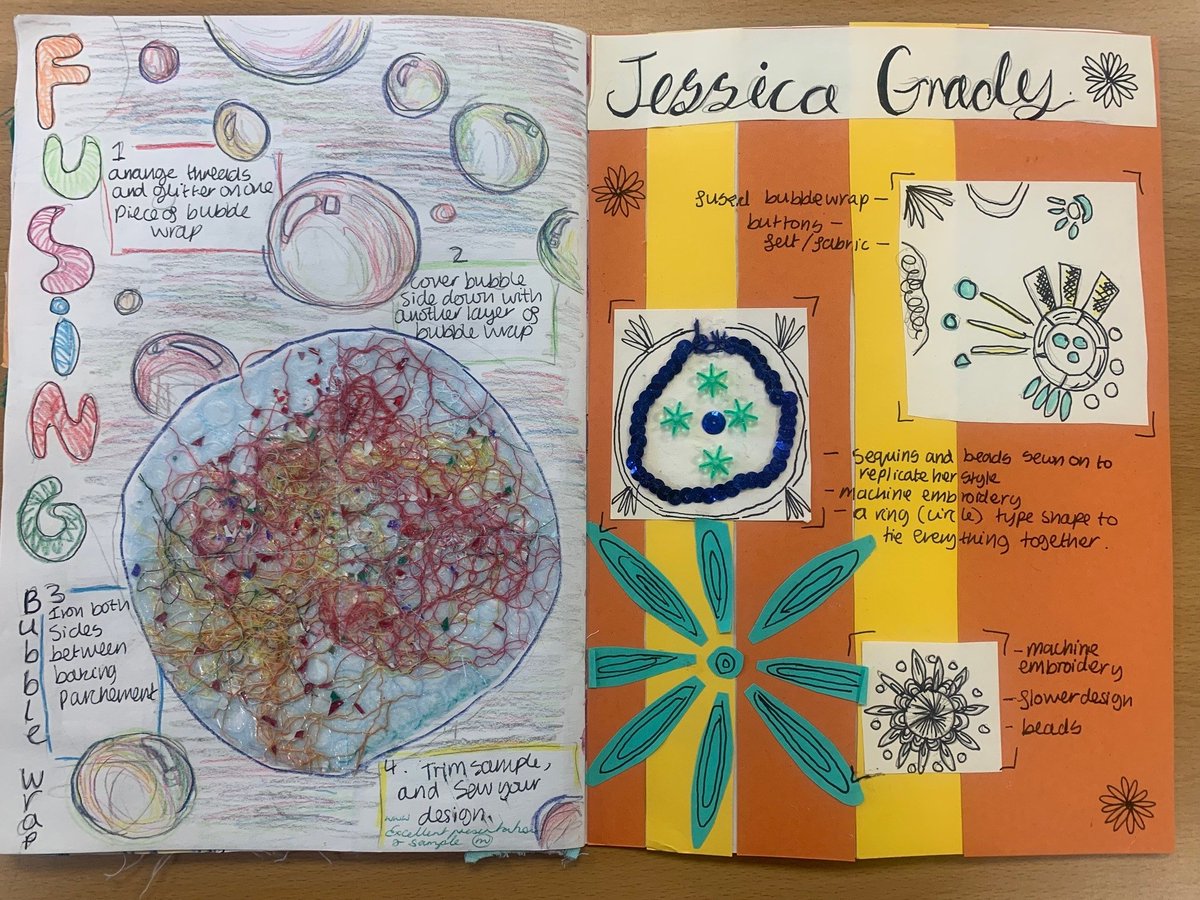 FUSiNG
Bubble wrap
1
arrange threads
and glitter on one
piece of bubble
wrap
2
cover bubble
side down with
another layer of
bubble wrap
3
Iron both
sides
between
baking
parchement
4. Trim sample,
and sew your
design.
wow
excellent presentation
& sample m
Jessica Grady.
fused bubblewrap –
buttons –
felt/fabric –
– sequins and beads sewn on to
replicate her style
– machine embroidery
– a ring (circle) type shape to
tie everything together.
– machine
embroidery
– flower design
– beads